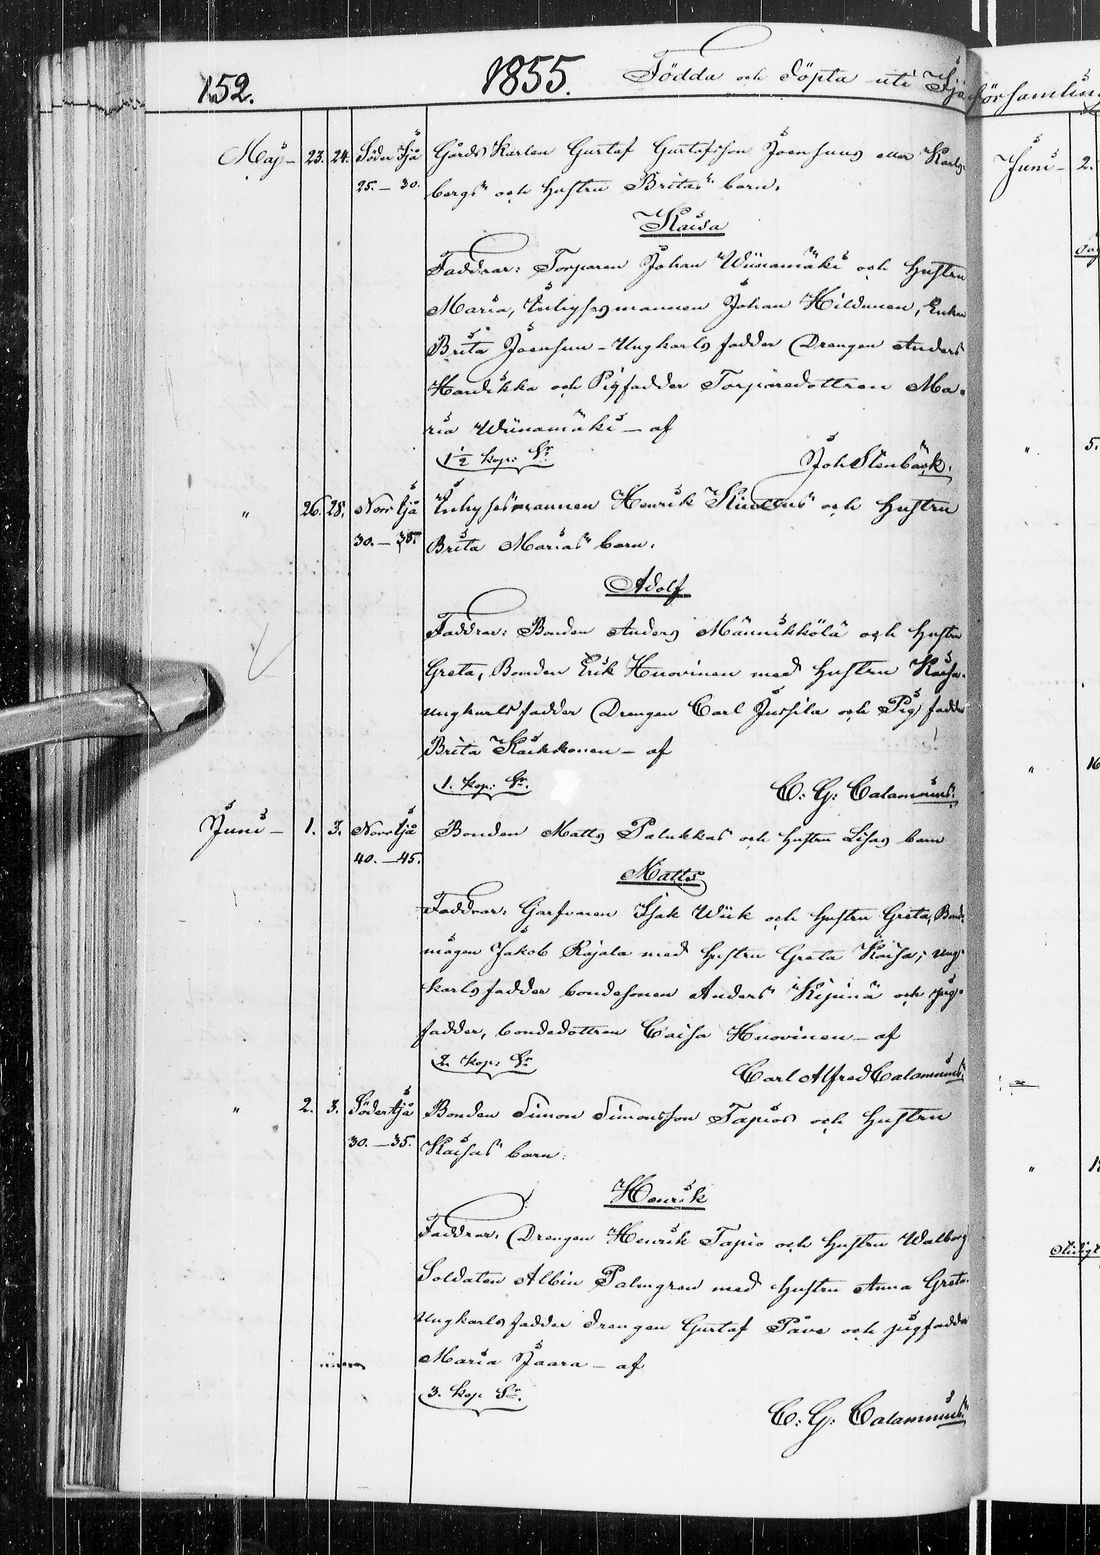 152. 1855. Födda och Döpta uti Ijo församling
Maj – 23. 24. Söder Ijå Gårds Karlen Gustaf Gustafsson Joensuus eller Karls-
25. – 30. bergs och hustru Britas barn.
Kaisa
Faddrar: Torparen Johan Wiinamäki och hustru
Maria, Inhysesmannen Johan Hildunen, Enkan
Brita Joensuu – Ungkarls fadder Drengen Anders
Handikka och Pigfadder Torparedottren Ma-
ria Wiinamäki – af
1½ kop: Sr. Joh Stenbäck.
" 26. 28. Norr Ijå Inhysesmannen Henrik och hustru
30. – 35. Brita Marias barn.
Adolf
Faddrar: Bonden Anders Männikkölä och hustru
Greta, Bonden Erik Huovinen med hustru Kaisa.
Ungkarlsfadder Drengen Carl Jussila och Pigfadder
Brita Kaikkonen – af
1. kop: Sr. C: G: Calamnius.
Juni – 1. 3. Norr Ijå Bonden Matts Palukkas och hustru Lisas barn
40. – 45.
Matts
Faddrar: Garfvaren Isak Wiik och hustru Greta, Bond-
mågen Jakob Rajala med hustru Greta Kaisa; ung-
karlsfadder bondesonen Anders Kipinä och pig-
fadder, bondedottren Caisa Huovinen – af
2. kop: Sr. Carl Alfred Calamnius.
" 2. 3. Söder Ijå Bonden Simon Simonsson Tapios och hustru
30. – 35. Kaisas barn:
Henrik
Faddrar: Drengen Henrik Tapio och hustru Walborg
Soldaten Albin Palmgren med hustru Anna Greta.
Ungkarls fadder drengen Gustaf Påve och pigfadder
Maria Jaara – af
3. kop Sr.
C: G: Calamnius.
Juni – 2.
" 5.
" 16
" 1